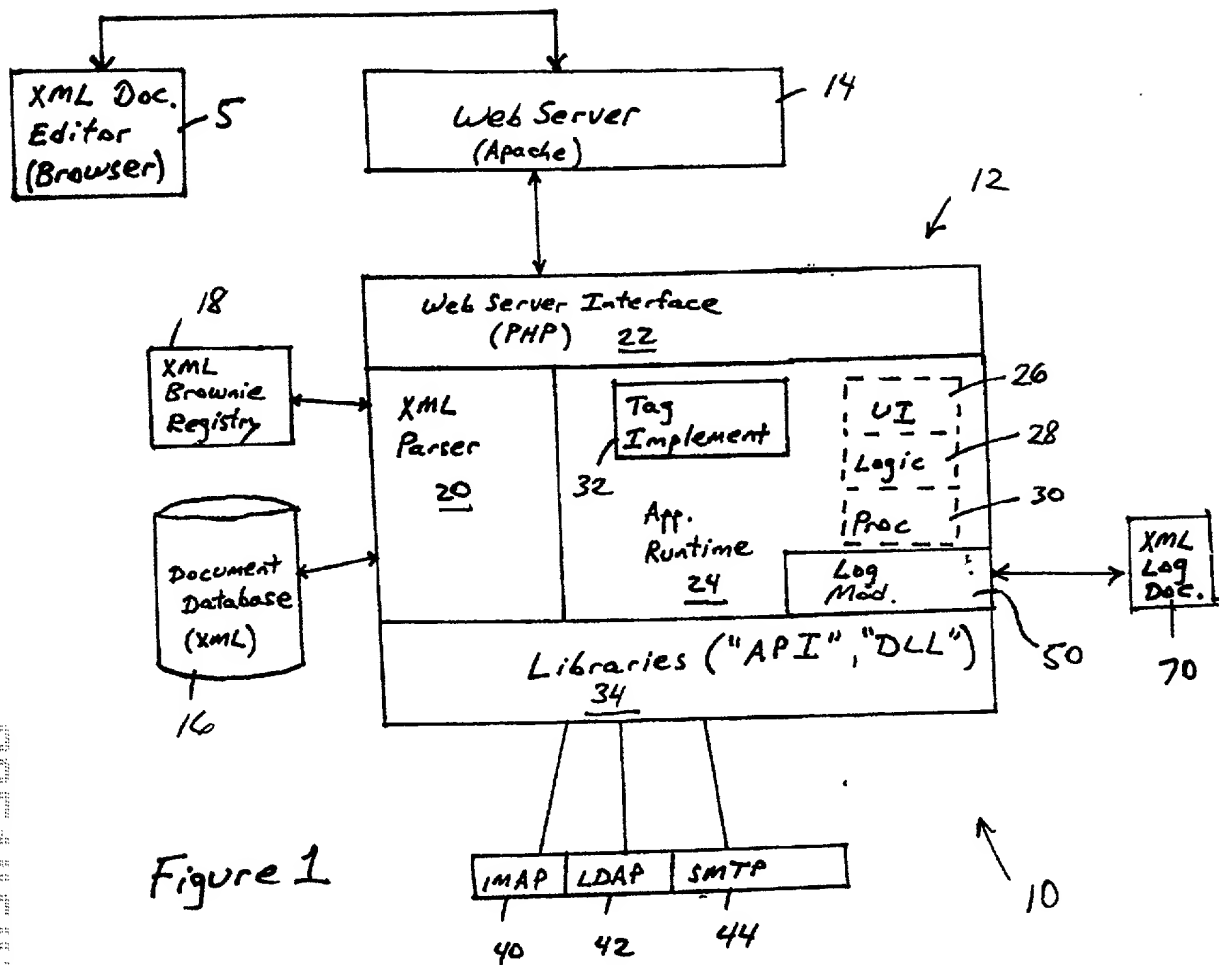 XML Doc.
Editor
(Browser)
5
Web Server
(Apache)
14
12
Web Server Interface
(PHP) 22
18
XML
Brownie
Registry
XML
Parser
20
Tag
Implement
32
26
UI
28
Logic
30
Proc
App.
Runtime
24
Log
Mod.
50
XML
Log
Doc.
70
Document
Database
(XML)
16
Libraries ("API", "DLL")
34
Figure 1
IMAP LDAP SMTP
40 42 44
10